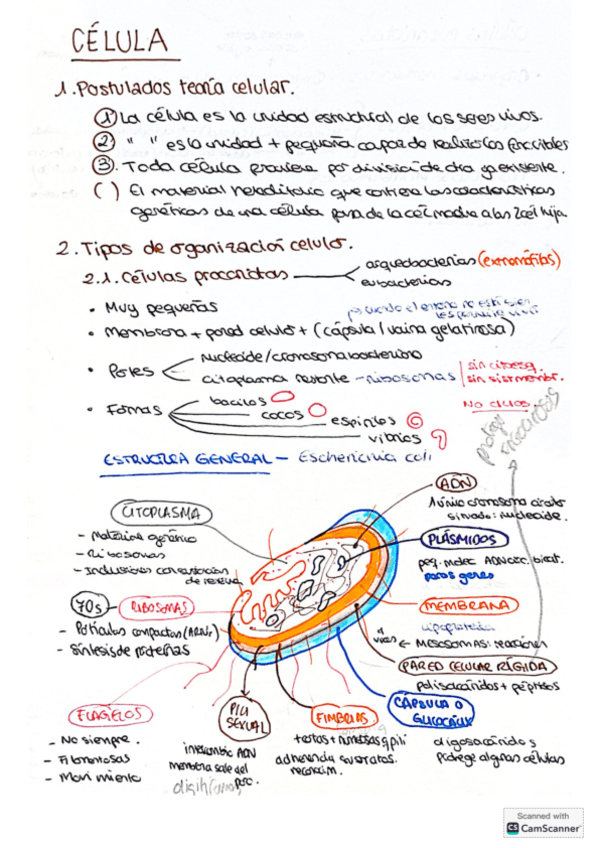 CÉLULA
1. Postulados teoría celular.
① La célula es la unidad estructural de los seres vivos.
② " " es la unidad + pequeña capaz de realizar las funcio
③. Toda célula proviene por división de otra ya existente.
( ) El material hereditario que contiene las características
genéticas de una célula pasa de la cél madre a las 2 cél hija.
2. Tipos de organización celular.
2.1. Células procariotas
arqueobacterias (extremófilas)
eubacterias
• Muy pequeñas
• Membrana + pared celular + (cápsula / vaina gelatinosa)
• Partes
nucleoide/cromosoma bacteriano
citoplasma restante - ribosomas
sin citoesq.
sin sist membr.
• Formas
bacilos
cocos
espirilos
vibrios
NO
protege
ESTRUCTURA GENERAL - Escherichia coli
CITOPLASMA
- Material genérico
- Ribosomas
- Inclusiones con sustancias
de reserva
ADN
1 único cromosoma circular
situado: nucleoide.
PLÁSMIDOS
peq. moléc ADN circ. bicat.
pocos genes
70s
RIBOSOMAS
- Partículas compactas (ARNr)
- Síntesis de proteínas
MEMBRANA
Lipoproteica
MESOSOMAS: reacciones
PARED CELULAR RÍGIDA
polisacáridos + péptidos
CÁPSULA O
GLUCOCÁLIX
oligosacáridos
protege algunas células
FLAGELOS
- No siempre.
- Filamentosas
- Movimiento
PILI
SEXUAL
intercambio ADN
membrana sale del
FIMBRIAS
+ cortas + numerosas q pili
adherencia sustratos.
reconocim.
Scanned with
CS CamScanner